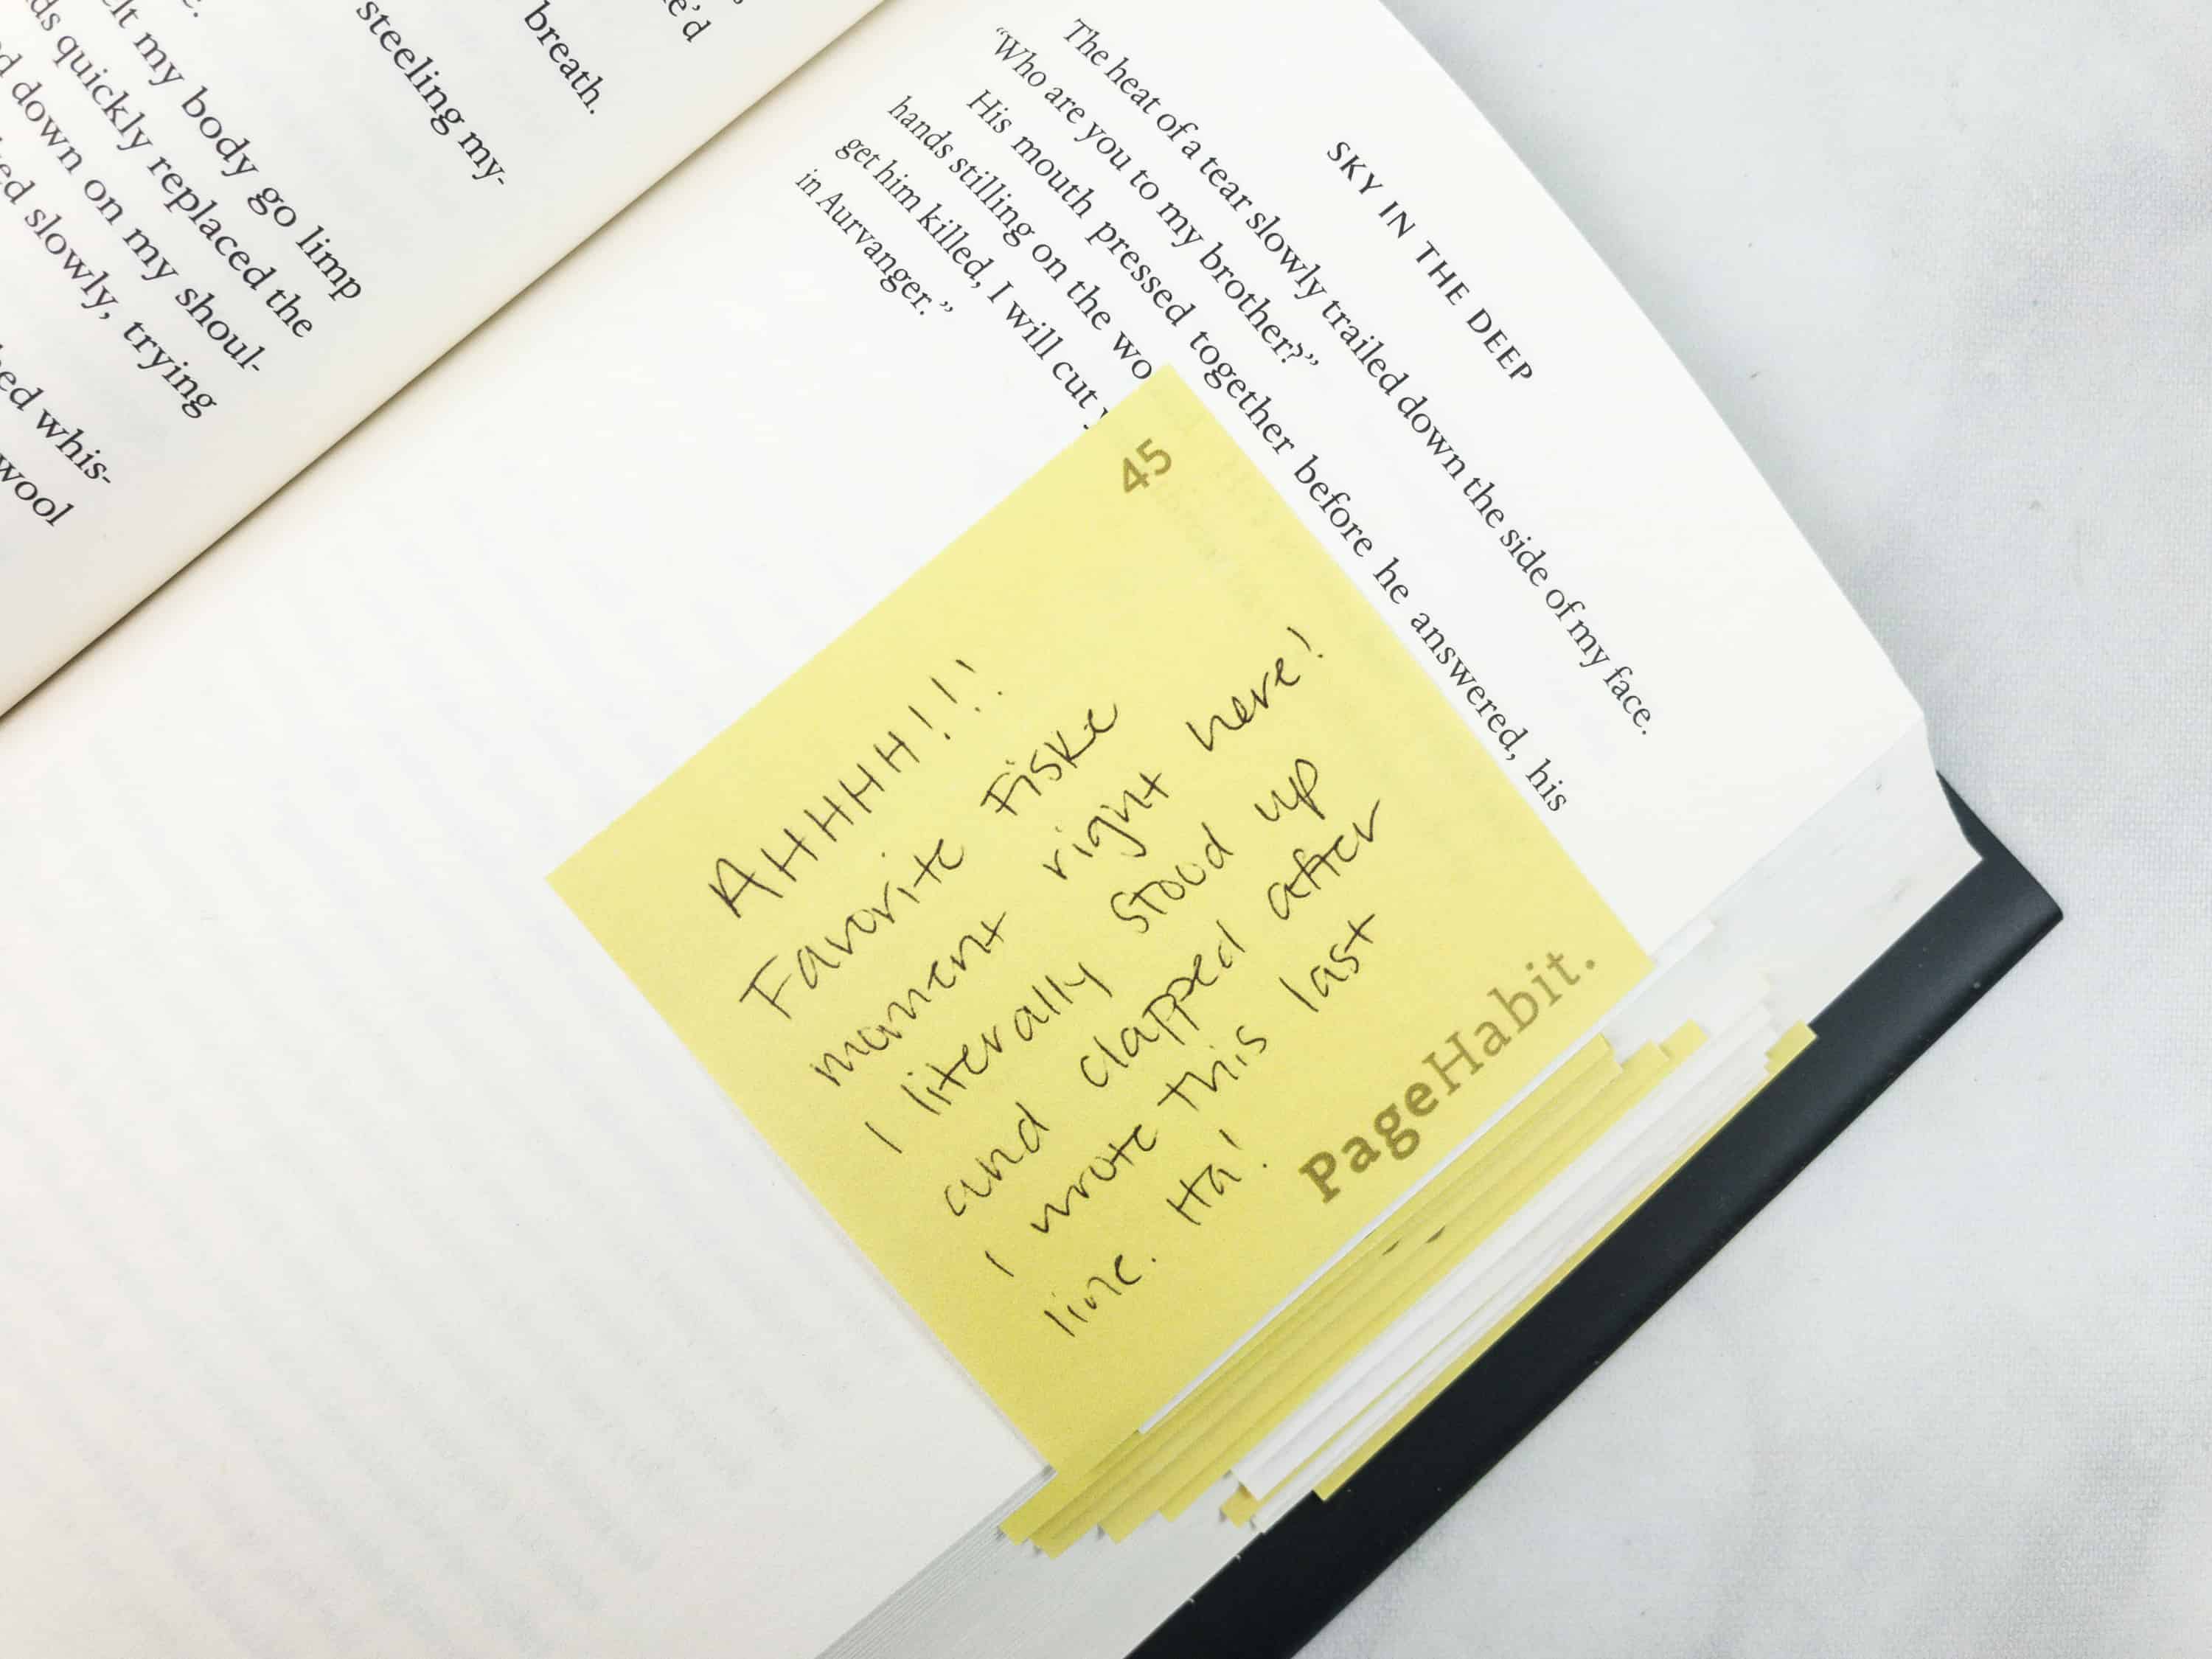 breath.
steeling my-
lt my body go limp
ds quickly replaced the
d down on my shoul-
ed slowly, trying
ed whis-
wool
SKY IN THE DEEP
The heat of a tear slowly trailed down the side of my face.
“Who are you to my brother?”
His mouth pressed together before he answered, his
hands stilling on the wo
get him killed, I will cut y
in Aurvanger.”
45
AHHHH!!!
Favorite Fiske
moment right here!
I literally stood up
and clapped after
I wrote this last
line. Ha!
PageHabit.